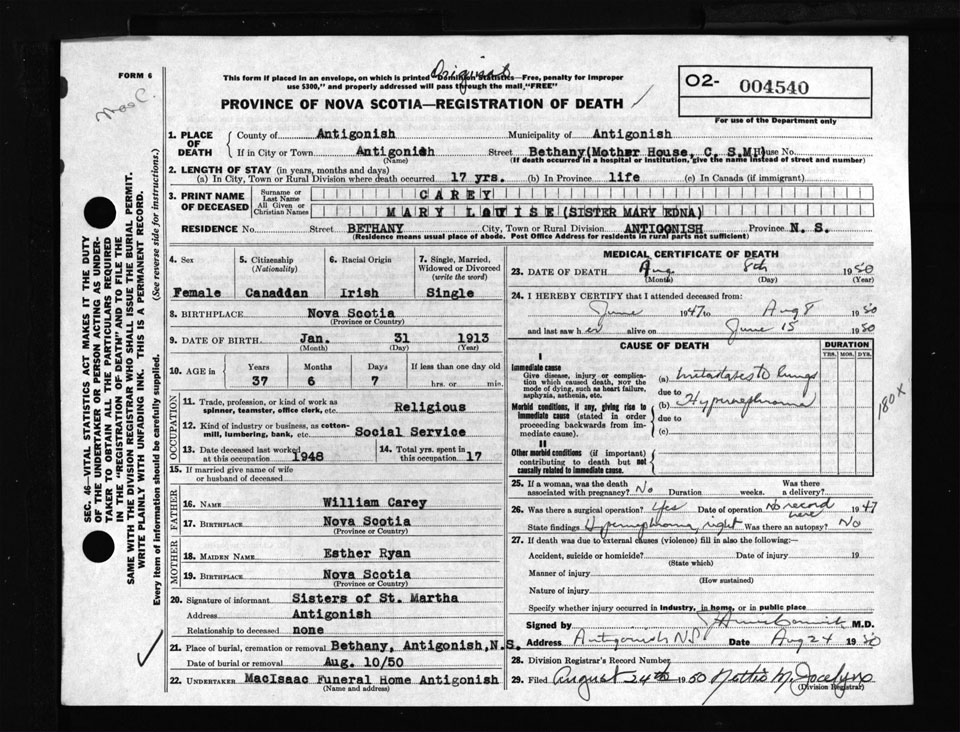 FORM 6
Original
This form if placed in an envelope, on which is printed "Dominion Statistics—Free, penalty for improper
use $300," and properly addressed will pass through the mail, "FREE"
PROVINCE OF NOVA SCOTIA—REGISTRATION OF DEATH
O2- 004540
For use of the Department only
SEC. 46—VITAL STATISTICS ACT MAKES IT THE DUTY
OF THE UNDERTAKER OR PERSON ACTING AS UNDER-
TAKER TO OBTAIN ALL THE PARTICULARS REQUIRED
IN THE "REGISTRATION OF DEATH" AND TO FILE THE
SAME WITH THE DIVISION REGISTRAR WHO SHALL ISSUE THE BURIAL PERMIT.
WRITE PLAINLY WITH UNFADING INK. THIS IS A PERMANENT RECORD.
Every item of information should be carefully supplied. (See reverse side for instructions.)
1. PLACE OF DEATH
County of Antigonish Municipality of Antigonish
If in City or Town Antigonish Street Bethany(Mother House, C. S.M.) House No.
(Name) (If death occurred in a hospital or institution, give the name instead of street and number)
2. LENGTH OF STAY (in years, months and days)
(a) In City, Town or Rural Division where death occurred 17 yrs. (b) In Province life (c) In Canada (if immigrant)
3. PRINT NAME OF DECEASED
Surname or Last Name CAREY
All Given or Christian Names MARY LOUISE (SISTER MARY EDNA)
RESIDENCE No. Street BETHANY City, Town or Rural Division ANTIGONISH Province N. S.
(Residence means usual place of abode. Post Office Address for residents in rural parts not sufficient)
4. Sex Female
5. Citizenship (Nationality) Canadian
6. Racial Origin Irish
7. Single, Married, Widowed or Divorced (write the word) Single
8. BIRTHPLACE Nova Scotia
(Province or Country)
9. DATE OF BIRTH Jan. 31 1913
(Month) (Day) (Year)
10. AGE in Years 37 Months 6 Days 7 If less than one day old hrs. or min.
OCCUPATION
11. Trade, profession, or kind of work as
spinner, teamster, office clerk, etc. Religious
12. Kind of industry or business, as cotton-
mill, lumbering, bank, etc. Social Service
13. Date deceased last worked
at this occupation 1948
14. Total yrs. spent in
this occupation 17
15. If married give name of wife
or husband of deceased
FATHER
16. NAME William Carey
17. BIRTHPLACE Nova Scotia
(Province or Country)
MOTHER
18. MAIDEN NAME Esther Ryan
19. BIRTHPLACE Nova Scotia
(Province or Country)
20. Signature of informant Sisters of St. Martha
Address Antigonish
Relationship to deceased none
21. Place of burial, cremation or removal Bethany, Antigonish, N.S.
Date of burial or removal Aug. 10/50
22. UNDERTAKER MacIsaac Funeral Home Antigonish
(Name and address)
MEDICAL CERTIFICATE OF DEATH
23. DATE OF DEATH Aug. 8th 1950
(Month) (Day) (Year)
24. I HEREBY CERTIFY that I attended deceased from:
June 1947 to Aug 8 1950
and last saw her alive on June 15 1950
CAUSE OF DEATH
DURATION
YRS. MOS. DYS.
I
Immediate cause
Give disease, injury or complica-
tion which caused death, NOT the
mode of dying, such as heart failure,
asphyxia, asthenia, etc.
(a) Metastases to lungs
due to
Morbid conditions, if any, giving rise to
immediate cause (stated in order
proceeding backwards from im-
mediate cause).
(b) Hypernephroma
due to
(c)
180X
II
Other morbid conditions (if important)
contributing to death but not
causally related to immediate cause.
25. If a woman, was the death
associated with pregnancy? No Duration weeks. Was there
a delivery?
26. Was there a surgical operation? Yes Date of operation No record here 1947
State findings Hypernephroma, right Was there an autopsy? No
27. If death was due to external causes (violence) fill in also the following:—
Accident, suicide or homicide? Date of injury 19
(State which)
Manner of injury
(How sustained)
Nature of injury
Specify whether injury occurred in industry, in home, or in public place
Signed by M.D.
Address Antigonish N.S. Date Aug 24 1950
28. Division Registrar's Record Number
29. Filed August 24th 1950 Nettie M. Jocelyn
(Division Registrar)